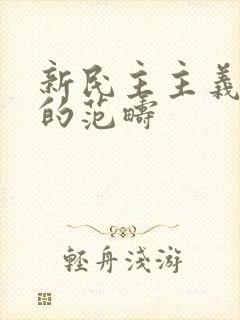 新民主主義
的范疇
輕舟淺游